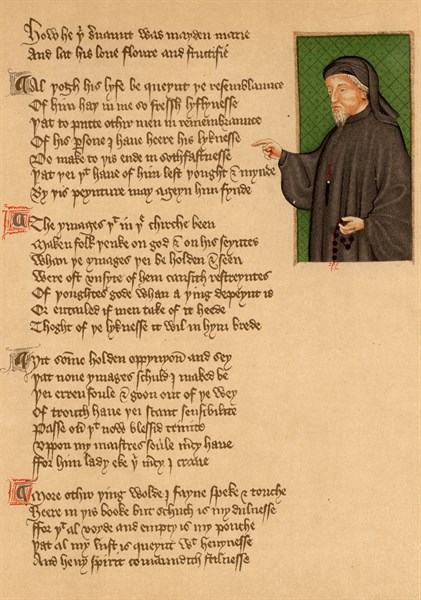 How he yͤ s'uaunt was mayden marie
And lat his loue floure and fructifie
Al yogh his lyfe be queynt ye resemblaunce
Of him hay in me so fressh lyflynesse
Yat to putte othir men in remembraunce
Of his p'sone I haue heere his lyknesse
Do make to yis ende in sothfastnesse
Yat yei yͭ haue of him left yought & mynde
By yis peynture may ageyn him fynde
The ymages yͭ in yͤ chirche been
Maken folk yenke on god & on his seyntes
Whan ye ymages yei be holden & seen
Were oft vnsyte of hem causith restreyntes
Of youghtes gode whan a ying depeynt is
Or entailed if men take of it heede
Thoght of ye lyknesse it wil in hym brede
Yit somme holden oppynyon and sey
Yat none ymages schuld I maked be
Yei erren foule & goon out of ye wey
Of trouth haue yei scant sensibilite
Passe ou' yͭ now blessid trinite
Vppon my maistres soule m'cy haue
ffor him lady eke yͥ m'cy I craue
More othir ying wolde I fayne speke & touche
Heere in yis booke but schuch is my dulnesse
ffor yͭ al voyde and empty is my pouche
Yat al my lust is queynt wͭ heuynesse
And heuy spirit comaundith stilnesse